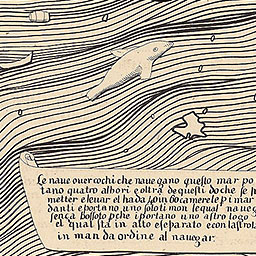 Le naue ouer cochi che nauegano questo mar po
tano quatro albori e oltra de questi do che se
metter e leuar el ha da
danti e portano uno solo ti mon el qual na ue g
sença bossolo p che i portano uno astrologo
el qual sta in alto e separato e con lastrol
in man da ordine al nauegar.